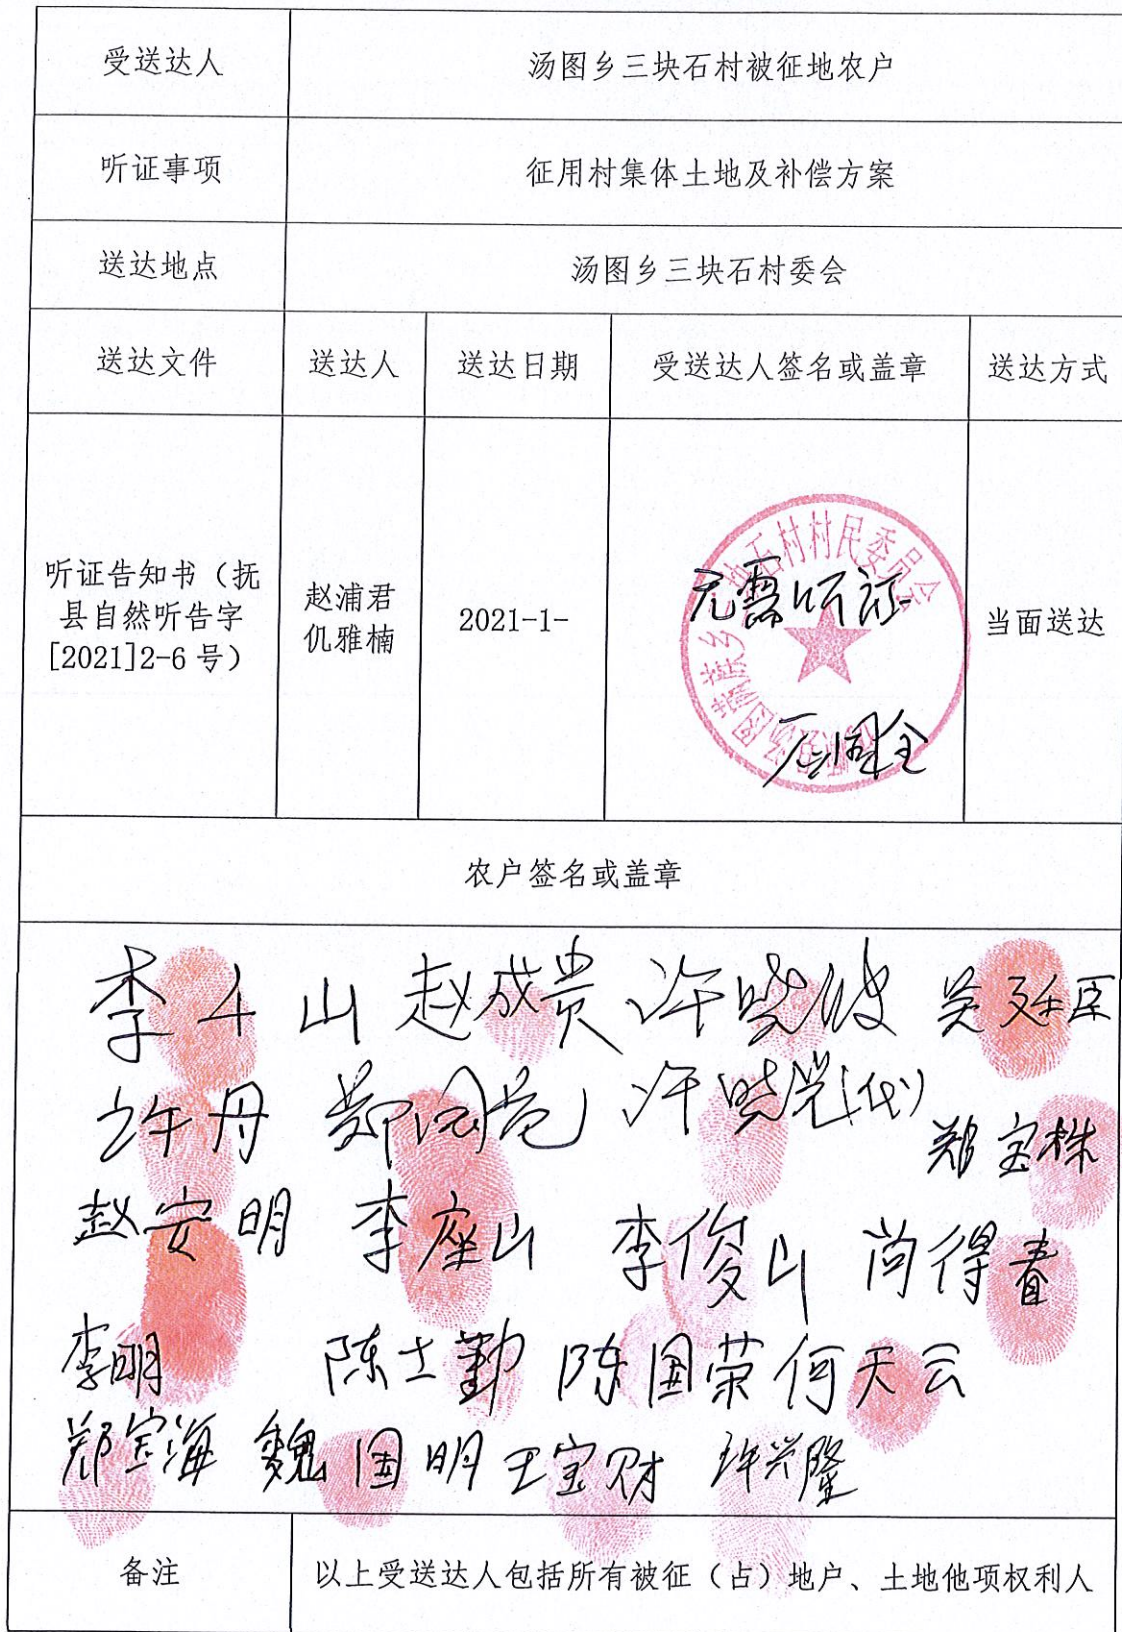 受送达人 汤图乡三块石村被征地农户
听证事项 征用村集体土地及补偿方案
送达地点 汤图乡三块石村委会
送达文件 送达人 送达日期 受送达人签名或盖章 送达方式
听证告知书（抚
县自然听告字
[2021]2-6 号）
赵浦君
仉雅楠
2021-1-
块石村村民委员会
无需听证
当面送达
农户签名或盖章
李 山 赵成贵 许晓波 吴廷臣
许丹 许晓光(代) 郑宝株
赵安明 李座山 李俊山 尚得春
李明 陈士勤 陈国荣 何天云
郑宝海 魏国明 王宝财 许兴隆
备注 以上受送达人包括所有被征（占）地户、土地他项权利人